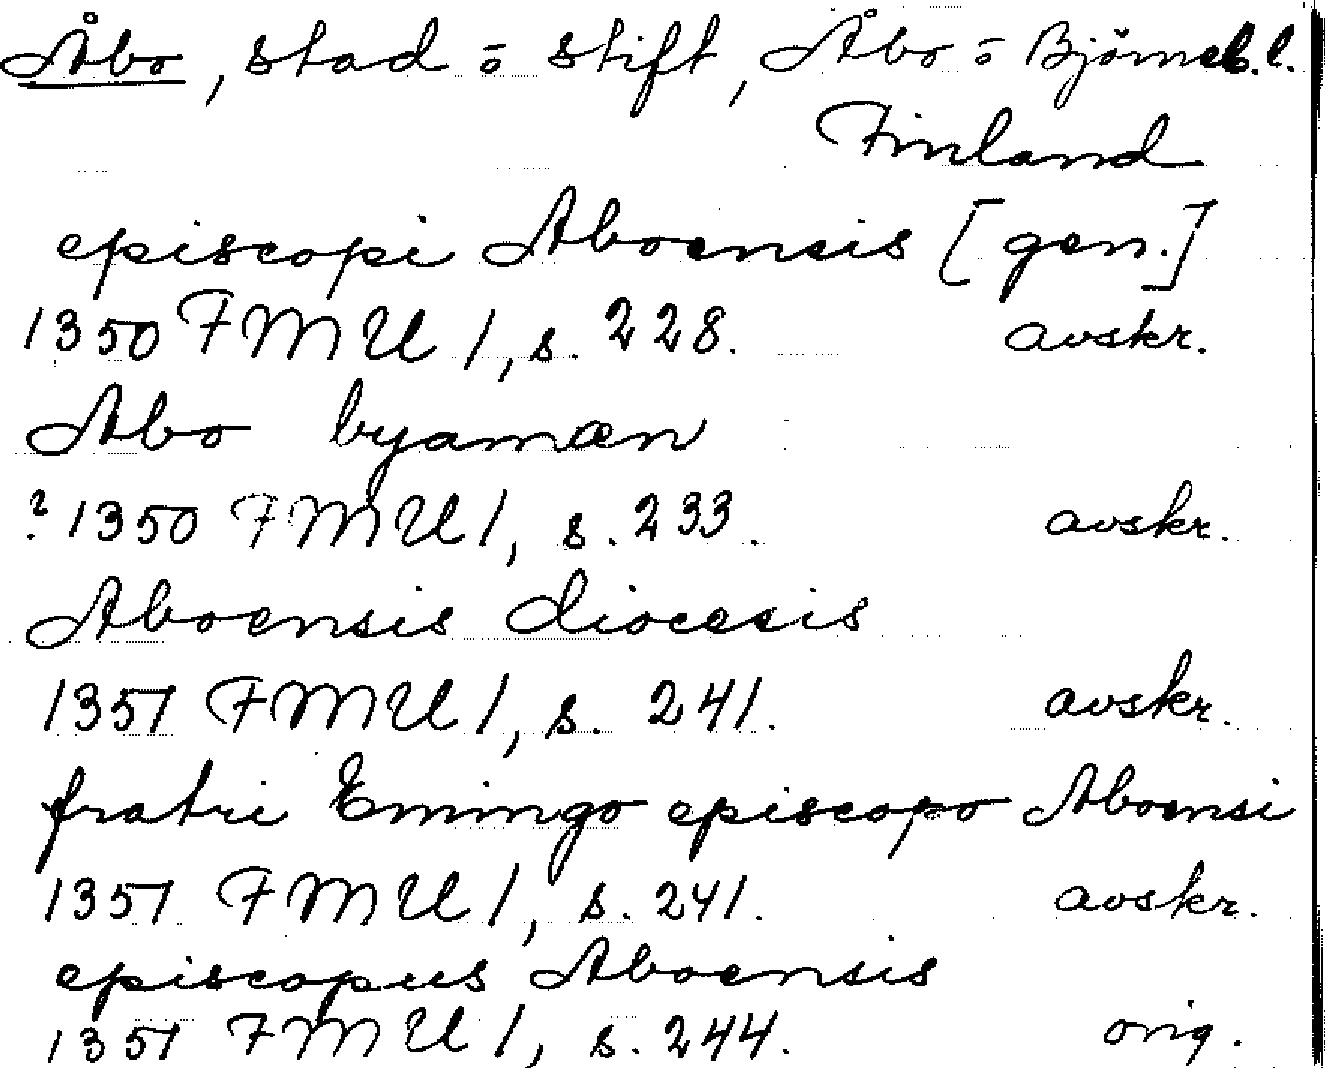 Åbo, stad o stift, Åbo o Björneb.l.
Finland
episcopi Aboensis [gen.]
1350 FMU 1, s. 228. avskr.
Abo byamæn
? 1350 FMU 1, s. 233. avskr.
Aboensis diocesis
1351 FMU 1, s. 241. avskr.
fratri Emingo episcopo Aboensi
1351 FMU 1, s. 241. avskr.
episcopus Aboensis
1351 FMU 1, s. 244. orig.